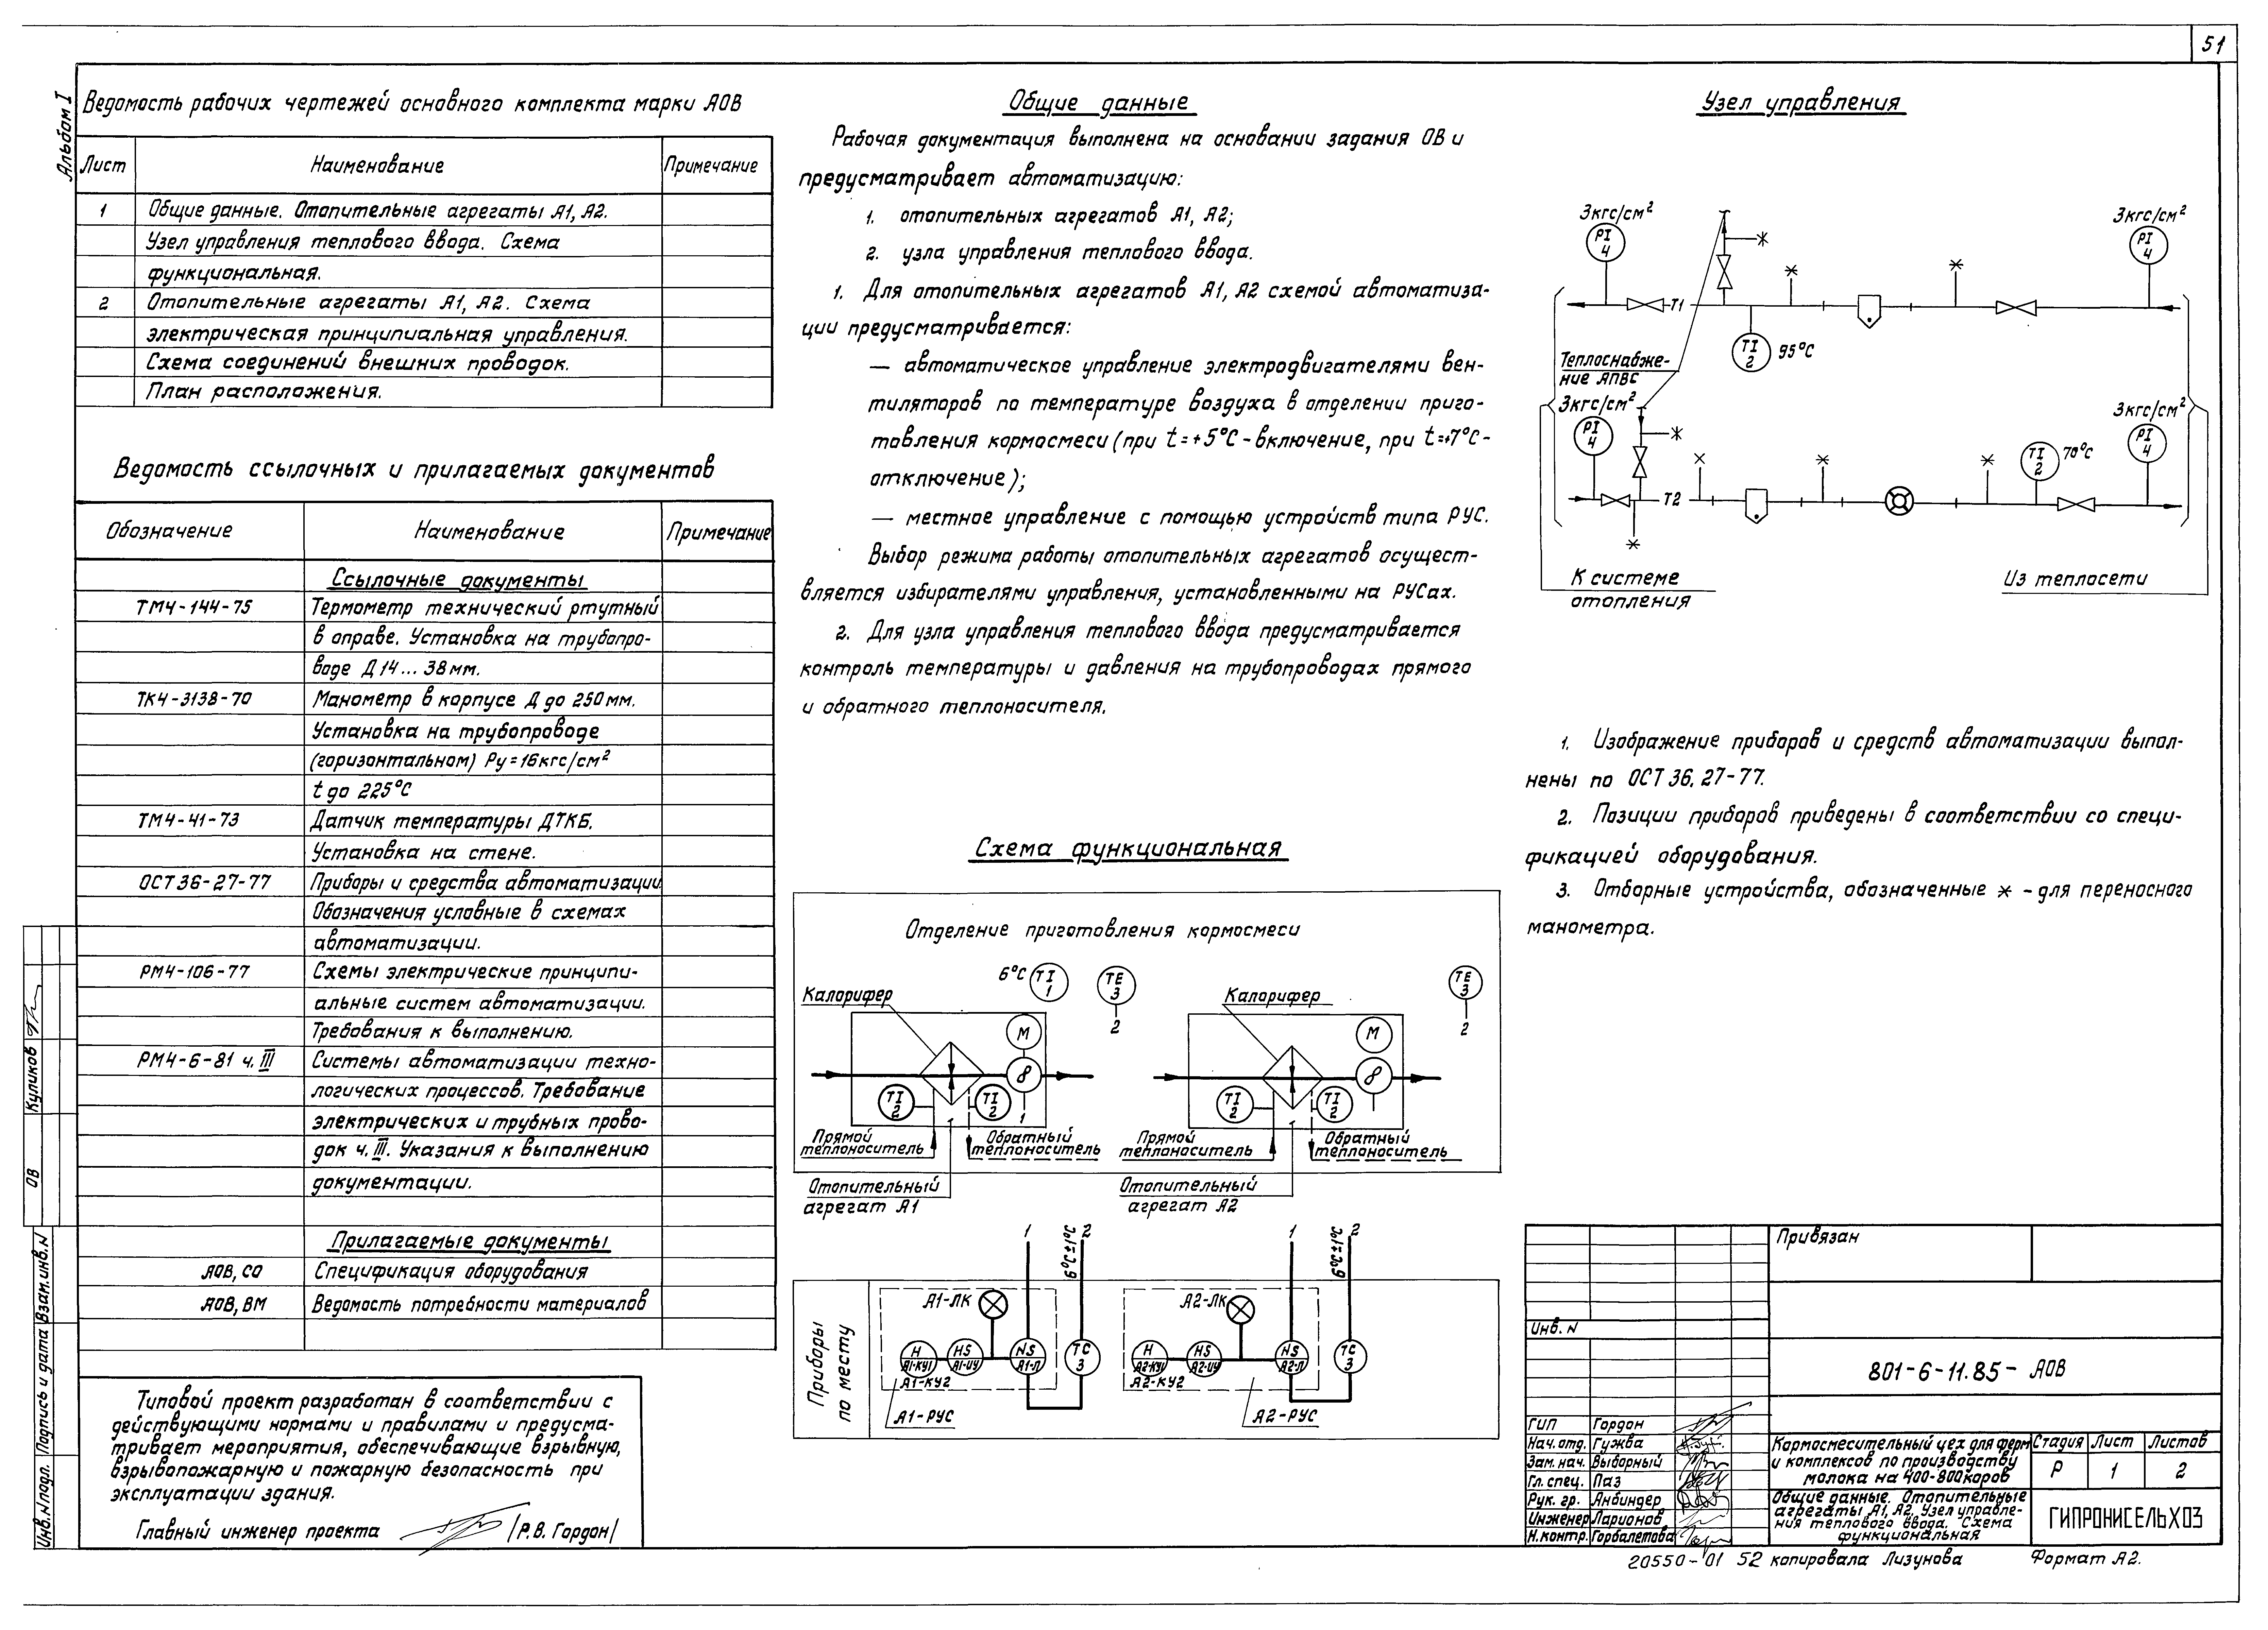 51
Альбом I
Ведомость рабочих чертежей основного комплекта марки АОВ
Лист Наименование Примечание
1 Общие данные. Отопительные агрегаты А1, А2.
Узел управления теплового ввода. Схема
функциональная.
2 Отопительные агрегаты А1, А2. Схема
электрическая принципиальная управления.
Схема соединений внешних проводок.
План расположения.
Ведомость ссылочных и прилагаемых документов
Обозначение Наименование Примечание
Ссылочные документы
ТМ4-144-75 Термометр технический ртутный
в оправе. Установка на трубопро-
воде Д 14 ... 38 мм.
ТК4-3138-70 Манометр в корпусе Д до 250 мм.
Установка на трубопроводе
(горизонтальном) Ру=16 кгс/см²
t до 225°С
ТМ4-41-73 Датчик температуры ДТКБ.
Установка на стене.
ОСТ 36-27-77 Приборы и средства автоматизации
Обозначения условные в схемах
автоматизации.
РМ4-106-77 Схемы электрические принципи-
альные систем автоматизации.
Требования к выполнению.
РМ4-6-81 ч. III Системы автоматизации техно-
логических процессов. Требование
электрических и трубных прово-
док ч. III. Указания к выполнению
документации.
Прилагаемые документы
АОВ, СО Спецификация оборудования
АОВ, ВМ Ведомость потребности материалов
Типовой проект разработан в соответствии с
действующими нормами и правилами и предусма-
тривает мероприятия, обеспечивающие взрывную,
взрывопожарную и пожарную безопасность при
эксплуатации здания.
Главный инженер проекта /Р.В. Гордон/
ОВ Куликов
Инв.N подл. Подпись и дата Взам.инв.N
Общие данные
Рабочая документация выполнена на основании задания ОВ и
предусматривает автоматизацию:
1. отопительных агрегатов А1, А2;
2. узла управления теплового ввода.
1. Для отопительных агрегатов А1, А2 схемой автоматиза-
ции предусматривается:
— автоматическое управление электродвигателями вен-
тиляторов по температуре воздуха в отделении приго-
товления кормосмеси (при t=+5°С - включение, при t=+7°С -
отключение);
— местное управление с помощью устройств типа РУС.
Выбор режима работы отопительных агрегатов осущест-
вляется избирателями управления, установленными на РУСах.
2. Для узла управления теплового ввода предусматривается
контроль температуры и давления на трубопроводах прямого
и обратного теплоносителя.
Схема функциональная
Отделение приготовления кормосмеси
6°С TI 1 TE 3 2 TE 3 2
Калорифер Калорифер
M M
8 8
TI 2 TI 2 1 TI 2 TI 2
Прямой теплоноситель Обратный теплоноситель
Прямой теплоноситель Обратный теплоноситель
Отопительный агрегат А1
Отопительный агрегат А2
1 2 1 2
6°С±1°С 6°С±1°С
Приборы по месту
А1-ЛК А2-ЛК
H А1-КУ1 HS А1-ИУ NS А1-П TC 3
H А2-КУ1 HS А2-ИУ NS А2-П TC 3
А1-КУ2 А2-КУ2
А1-РУС А2-РУС
Узел управления
3кгс/см² 3кгс/см²
PI 4 PI 4
Т1
TI 2 95°С
Теплоснабже-
ние АПВС
3кгс/см² 3кгс/см²
PI 4 TI 2 70°С PI 4
Т2
К системе
отопления
Из теплосети
1. Изображение приборов и средств автоматизации выпол-
нены по ОСТ 36.27-77.
2. Позиции приборов приведены в соответствии со специ-
фикацией оборудования.
3. Отборные устройства, обозначенные ж - для переносного
манометра.
Привязан
Инв. N
801-6-11.85- АОВ
ГИП Гордон
Нач. отд. Гужва
Зам. нач. Выборный
Гл. спец. Паз
Рук. гр. Анбиндер
Инженер Ларионов
Н.контр. Горбалетова
Кормосмесительный цех для ферм
и комплексов по производству
молока на 400-800 коров
Стадия Лист Листов
Р 1 2
Общие данные. Отопительные
агрегаты А1, А2. Узел управле-
ния теплового ввода. Схема
функциональная
ГИПРОНИСЕЛЬХОЗ
20550-01 52 копировала Лизунова Формат А2.